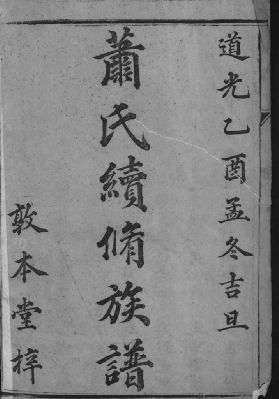 道光乙酉孟冬吉旦
蕭氏續脩族譜
敦本堂梓